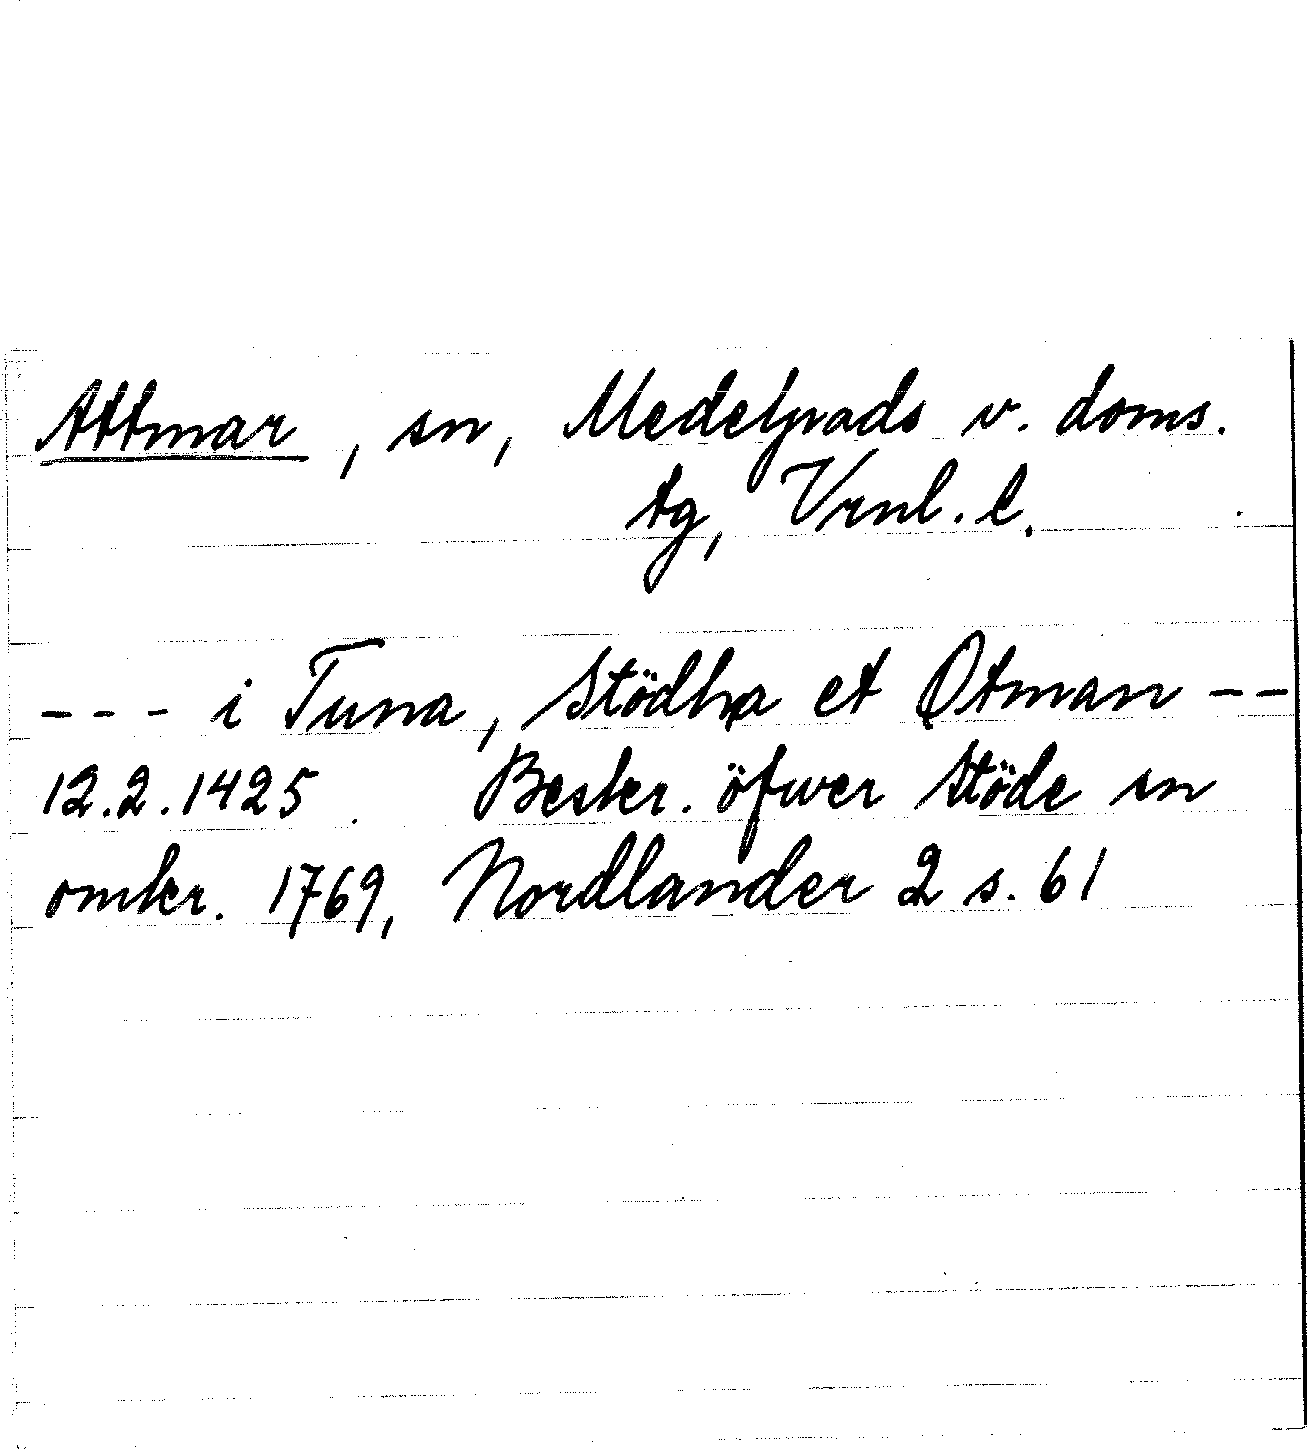 Attmar, sn, Medelpads v. doms.
tg, Vrnl. l.
--- i Tuna, Stödha et Otman --
12.2.1425. Beskr. öfwer Stöde sn
omkr. 1769, Nordlander 2 s. 61